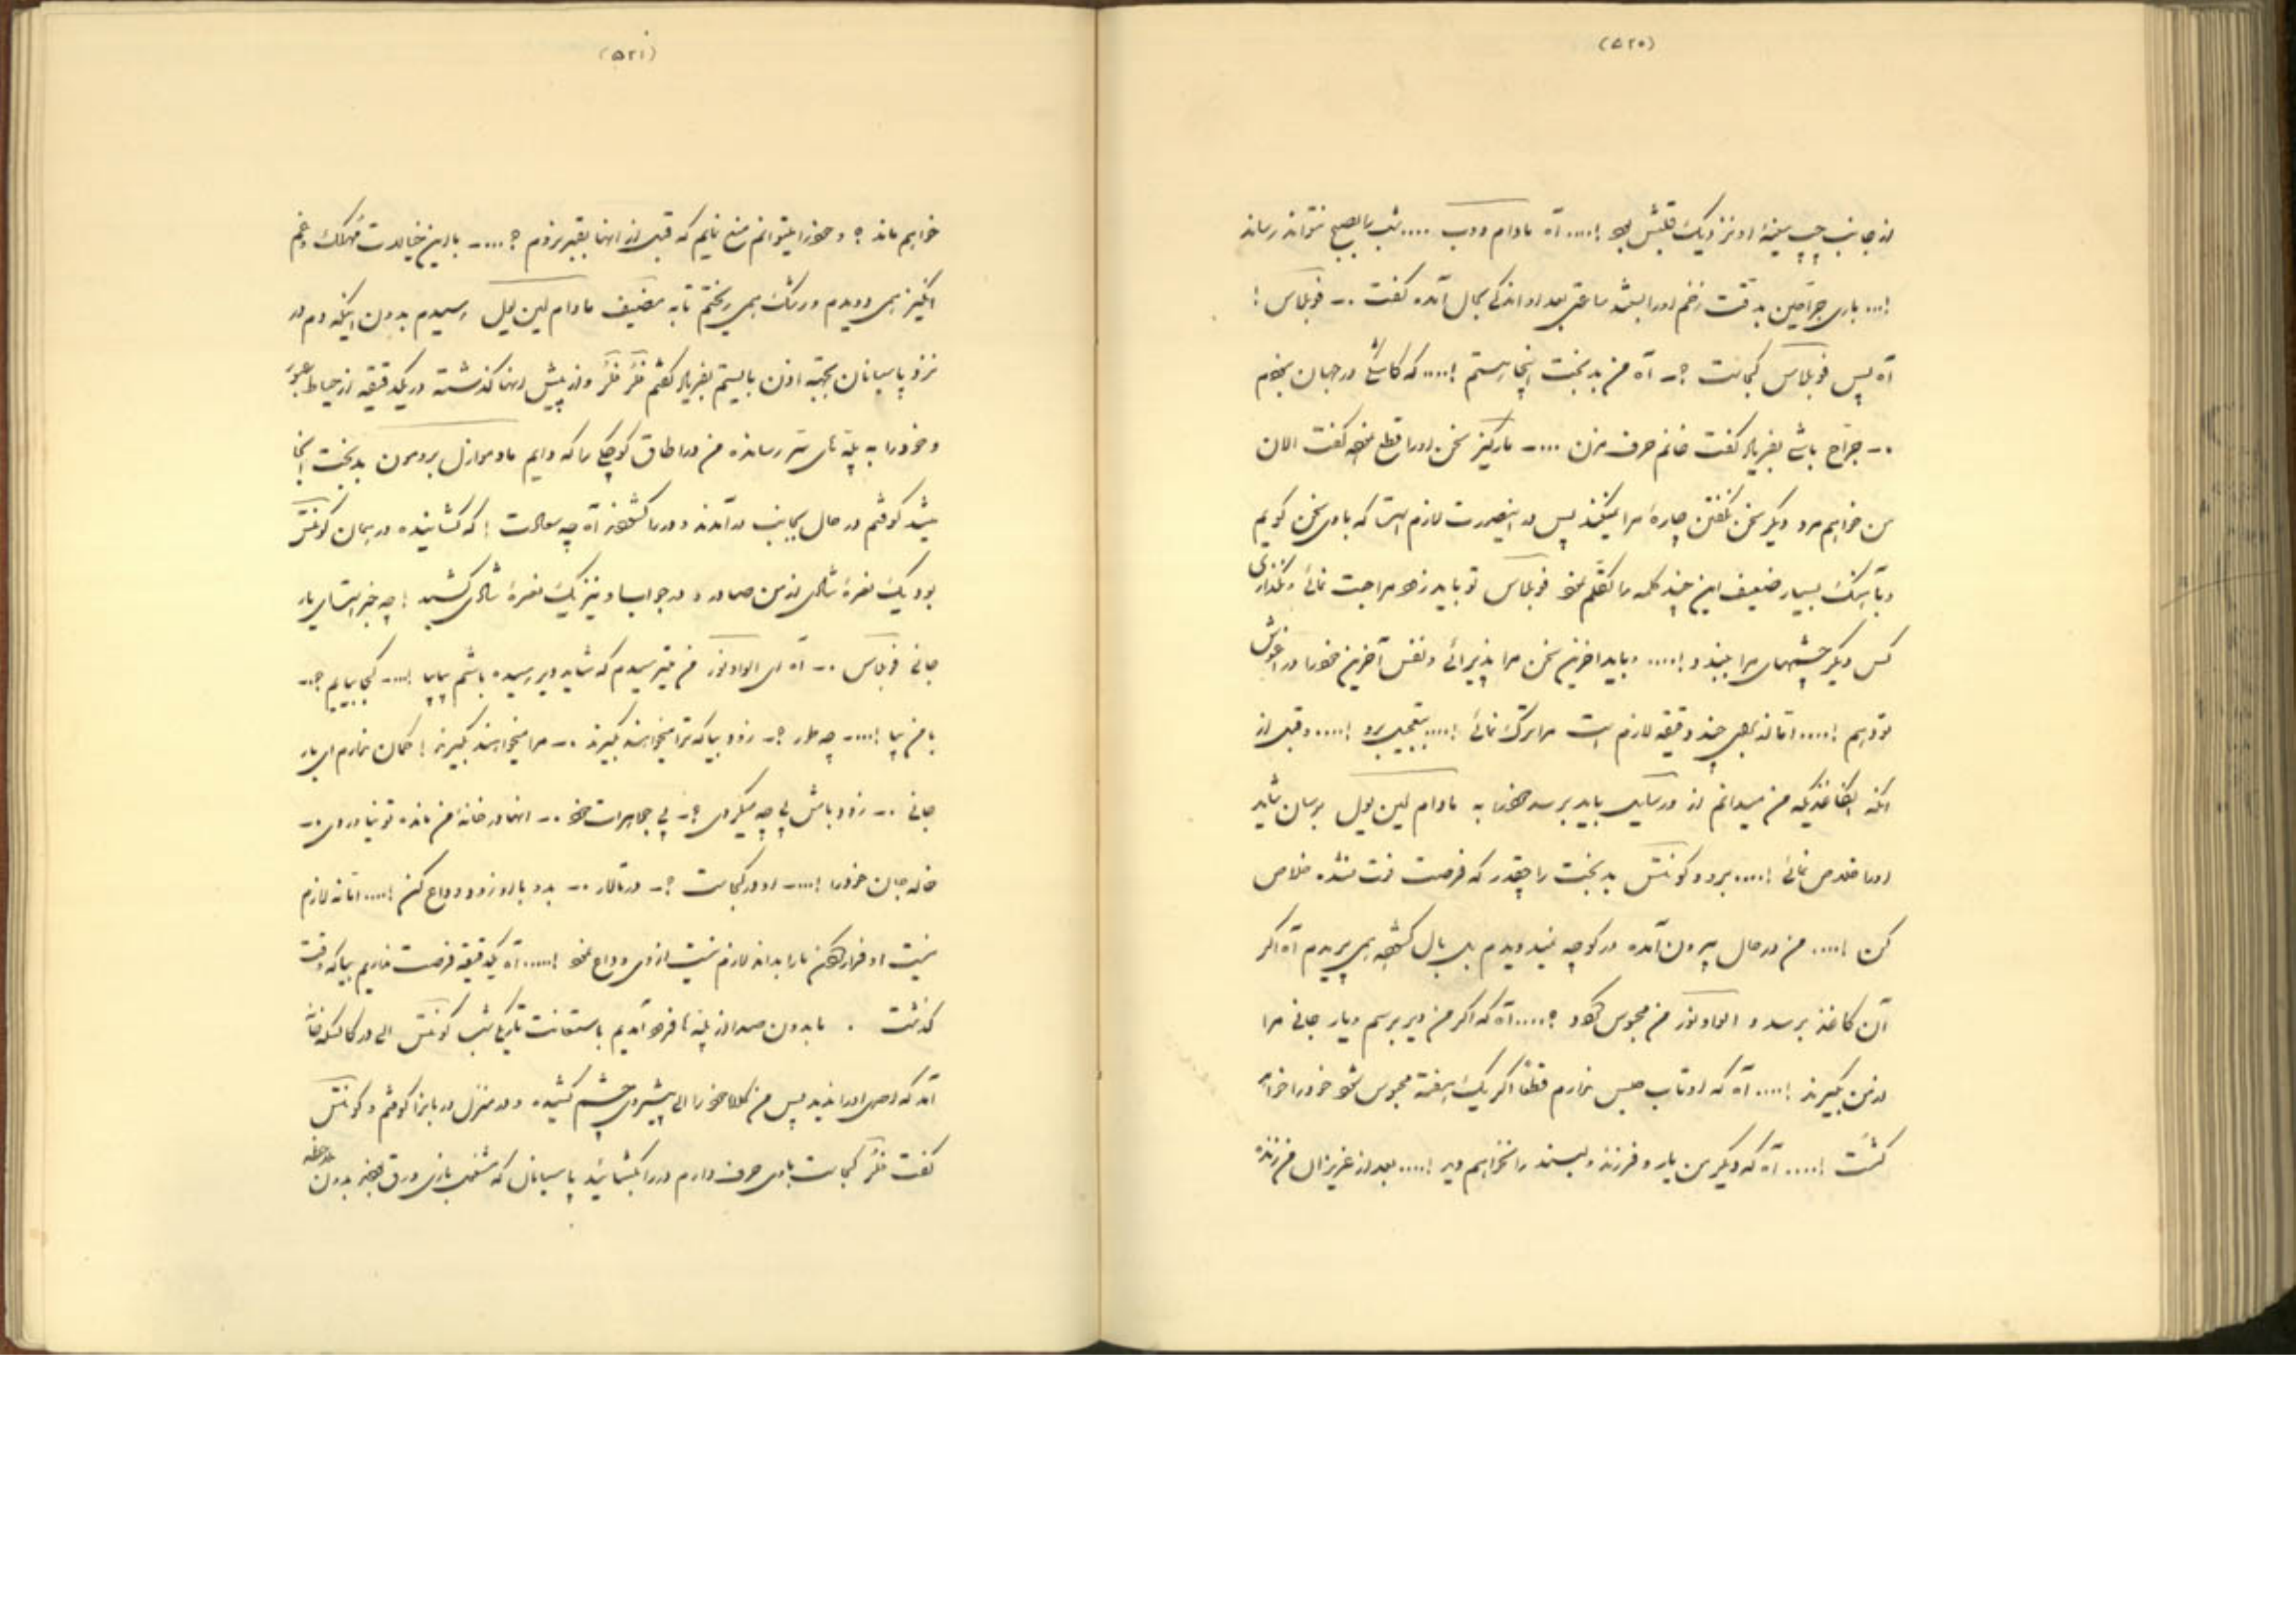 (۵۲۰)
از جانب چپ سینهٔ او نزدیک قلبش بود !.... آه مادام دوب .... شب را بصبح نتواند رساند
!... باری جراحین بدقت زخم او را بسته ساعتی بعد او اندکی بحال آمده گفت .- فوبلاس !
آه پس فوبلاس کجاست ؟.- آه من بدبخت اینجا هستم !.... که کاش در جهان نبودم
.- جراح باشی بفریاد گفت خانم حرف مزن ....- مارکیز سخن او را قطع نموده گفت الان
من خواهم مرد دیگر سخن نگفتن چارهٔ مرا نمیکند پس در اینصورت لازم است که با وی سخن گویم
و بآهنگ بسیار ضعیف این چند کلمه را تکلم نمود فوبلاس تو باید زود مراجعت نمائی و نگذاری
کس دیگر چشمهای مرا ببندد !.... و باید آخرین سخن مرا پذیرائی و نفس آخرین خود را در آغوش
تو دهم !.... اما نه بلی چند دقیقه لازم است مرا ترک نمائی !.... بتعجیل برو !.... و قبل از
آنکه آن کاغذیکه من میدانم از ورسایل باید برسد خود را به مادام لین یول برسان شاید
او را خلاص نمائی !.... برو و کونتس بدبخت را چقدر که فرصت فوت نشده خلاص
کن !.... من در حال بیرون آمده در کوچه نمیدویدم بلی بال گشوده همی پریدم آه اگر
آن کاغذ برسد و الوادنور من محبوس گردد ؟.... آه که اگر من دیر برسم و یار جانی مرا
از من بگیرند !.... آه که او تاب حبس ندارد قطعاً اگر یک هفته محبوس شود خود را خواهد
کشت !.... آه که دیگر من یار و فرزند دلبند را نخواهم دید !.... بعد از عزیزان من زنده
(۵۲۱)
خواهم ماند ؟ و خود را میتوانم منع نمایم که قبل از آنها بقبر نروم ؟....- با این خیالات مهلک و غم
انگیز همی دویدم و اشک همی ریختم تا به مضیف مادام لین یول رسیدم بدون اینکه دم در
نزد پاسبانان بجهة اذن بایستم بفریاد گفتم فلر فلر و از پیش آنها گذشته در یکدقیقه از حیاط عبور
و خود را به پله‌های سر رسانده من در اطاق کوچکی را که دایم مادموازل برومون بدبخت آنجا
میشد کوفتم در حال بجانب در آمدند و در را گشودند آه چه سعادت ! که گشاینده در همان کونتس
بود یک نعرهٔ شادی از من صادر و در جواب او نیز یک نعرهٔ شادی کشید ! چه خبر است ای یار
جانی فوبلاس .- آه ای الوادنور من میترسیدم که شاید دیر رسیده باشم بیا بیا !....- کجا بیایم ؟.-
با من بیا !....- چه طور ؟.- زود بیا که ترا میخواهند بگیرند .- مرا میخواهند بگیرند ! گمان ندارم ای یار
جانی .- زود باش پی چه میگردی ؟.- پی جواهرات خود .- آنها در خانهٔ من مانده تو نیاوردی .-
خاله جان خود را !....- او در کجاست ؟.- در تالار .- برو با او زود وداع کن !.... اما نه لازم
نیست او فرار کردن ما را بداند لازم نیست از وی وداع نمود !..... آه یکدقیقه فرصت نداریم بیا که وقت
گذشت . ما بدون صدا از پله‌ها فرود آمدیم باستعانت تاریکی شب کونتس الی در کالسکه خانه
آمد که احدی او را ندید پس من کلاه خود را الی پیش روی چشم کشیده و در منزل دربان را کوفتم و کونتس
گفت فلر کجاست با وی حرف دارم در را بگشائید پاسبانان که مشغول بازی ورق بودند بدون ملاحظه